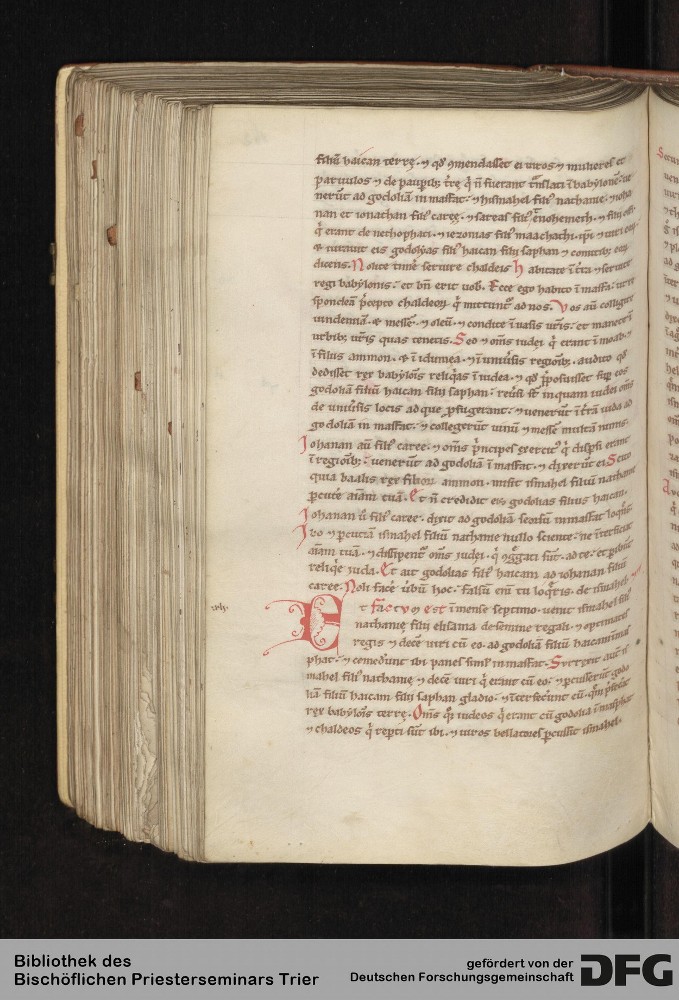 filiũ haican terrę. ⁊ qđ ꝯmendasset ei uiros ⁊ mulieres et
paruulos ⁊ de paupib; t̃rę q̇ ñ fuerant t̃nslati ĩ babylonẽ: ue
nerũt ad godoliã in massat. ⁊ hismahel filiꝰ nathanie. ⁊ ioha
nan et ionathan filiꝰ caree. ⁊ sareas filiꝰ
q̇ erant de nethophati. ⁊ iezonias filiꝰ maachathi. ipi ⁊ uiri
⁊ iurauit eis godolyas filiꝰ haican filii saphan ⁊ comitib;
dicens. Nolite timẽ seruire chaldeis habitate ĩ t̃ra ⁊ seruite
regi babylonis: et bñ erit uob. Ecce ego habito ĩ massa: ut
respondeã p̃cepto chaldeoꝝ q̇ mittuntꝰ ad nos. Vos aũ colligite
uindemiã. ⁊ messẽ. ⁊ oleũ. ⁊ condite ĩ uasis ur̃is: et manete ĩ
urbib; ur̃is quas tenetis. Sed ⁊ om̃s iudei q̇ erant ĩ moab. ⁊
ĩ filiis ammon. ⁊ ĩ idumea. ⁊ ĩ uniũsis regionib;. audito qđ
dedisset rex babylõis reliq̃as ĩ iudea. ⁊ qđ p̃posuisset sup eos
godoliã filiũ haican filii saphan: reũsi st̃ inquam iudei om̃s
de uniũsis locis ad que p̃fugerant: ⁊ uenerũt ĩ t̃rã iuda ad
godoliã in massat: ⁊ collegerũt uinũ ⁊ messẽ multã nimis.
Iohanan aũ filiꝰ caree. ⁊ om̃s p̃ncipes exercitꝰ q̇ disp̃si erant
ĩ regiõib;: uenerũt ad godoliã ĩ massat. ⁊ dixerũt ei. Scito
quia baalis rex filioꝝ ammon. misit ismahel filiũ nathanie
p̃cutẽ aĩam tuã. Et ñ credidit eis godolias filius haican.
Iohanan ũ filiꝰ caree. dixit ad godoliã seorsũ in massat loq̃ns.
Ibo ⁊ p̃cutiã ismahel filiũ nathanie nullo sciente. ne ĩterficiat
aĩam tuã. ⁊ dissipentꝰ om̃s iudei. q̇ ꝯg̃gati sũt. ad te. et pibũt
reliq̃ę iuda. Et ait godolias filiꝰ haicam ad iohanan filiũ
caree. Noli facẽ ũbũ hoc: falsũ eni tu loq̃ris. de ismahel.
Et factvm est ĩ mense septimo. uenit ismahel filiꝰ
nathanię filii elisama de semine regali. ⁊ optimates
regis ⁊ decẽ uiri cũ eo. ad godoliã filiũ haicam ĩ mas
phat: ⁊ comedũnt ibi panes simĺ in massat. Surrexit aut̃ is
mahel filiꝰ nathanię ⁊ decẽ uiri q̇ erant cũ eo: ⁊ p̃cusserũt godo
liã filiũ haicam filii saphan gladio. ⁊ ĩterfecerũt eũ. quẽ p̃fecat
rex babylõis terrę. Om̃s q̊q; iudeos q̇ erant cũ godolia ĩ masphat
⁊ chaldeos q̇ rep̃ti sũt ibi. ⁊ uiros bellatores p̃cussit ismahel.
Bibliothek des
Bischöflichen Priesterseminars Trier
gefördert von der
Deutschen Forschungsgemeinschaft
DFG